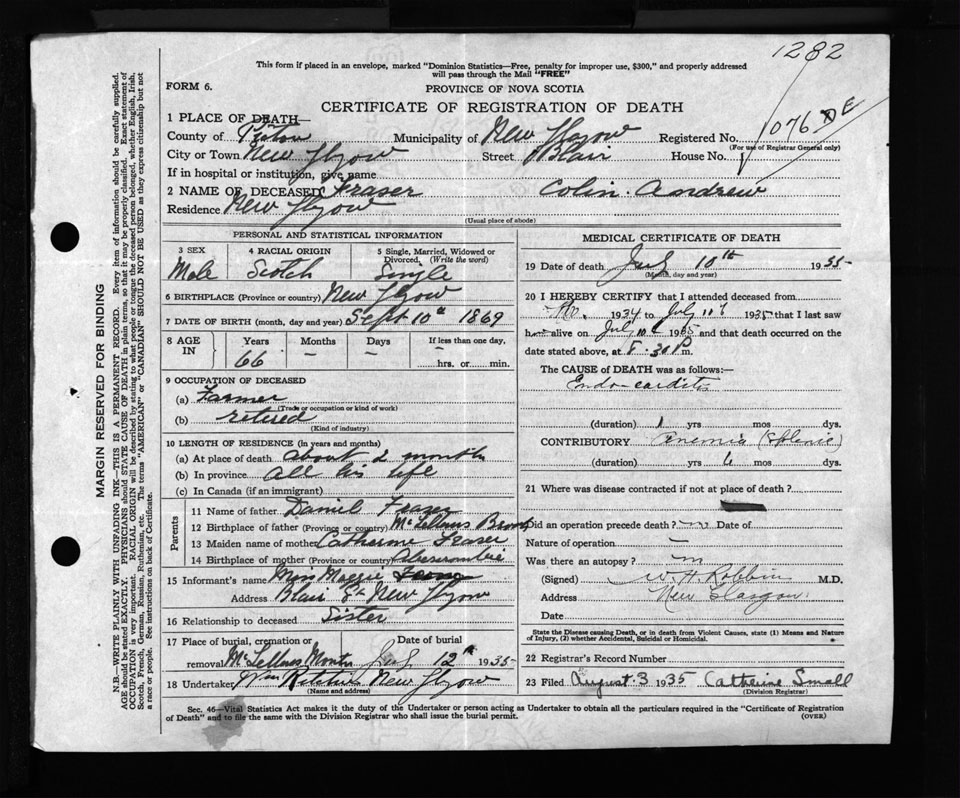 1282
This form if placed in an envelope, marked "Dominion Statistics—Free, penalty for improper use, $300," and properly addressed
will pass through the Mail "FREE"
FORM 6.
PROVINCE OF NOVA SCOTIA
CERTIFICATE OF REGISTRATION OF DEATH
1 PLACE OF DEATH—
County of Pictou Municipality of New Glasgow Registered No. 1076
(For use of Registrar General only)
City or Town New Glasgow Street Blair House No.
If in hospital or institution, give name
2 NAME OF DECEASED Fraser Colin Andrew
Residence New Glasgow
(Usual place of abode)
PERSONAL AND STATISTICAL INFORMATION
3 SEX 4 RACIAL ORIGIN 5 Single, Married, Widowed or Divorced. (Write the word)
Male Scotch Single
6 BIRTHPLACE (Province or country) New Glasgow
7 DATE OF BIRTH (month, day and year) Sept 10th 1869
8 AGE IN Years Months Days If less than one day,
66 – – hrs. or min.
9 OCCUPATION OF DECEASED
(a) Farmer
(Trade or occupation or kind of work)
(b) retired
(Kind of industry)
10 LENGTH OF RESIDENCE (in years and months)
(a) At place of death about 2 months
(b) In province all his life
(c) In Canada (if an immigrant)
Parents
11 Name of father Daniel Fraser
12 Birthplace of father (Province or country) McLellans
13 Maiden name of mother Catherine Fraser
14 Birthplace of mother (Province or country) Abercrombie
15 Informant's name Miss Maggie Fraser
Address Blair St New Glasgow
16 Relationship to deceased Sister
17 Place of burial, cremation or Date of burial
removal McLellans Mountn July 12th 1935
18 Undertaker Wm Ritchie New Glasgow
(Name and address)
MEDICAL CERTIFICATE OF DEATH
19 Date of death July 10th 1935
(Month, day and year)
20 I HEREBY CERTIFY that I attended deceased from
1934 to July 1935 that I last saw
h alive on July 10 1935 and that death occurred on
date stated above, at 8.30 P m.
The CAUSE of DEATH was as follows:—
Endo-carditis
(duration) 1 yrs mos dys.
CONTRIBUTORY anemia (Splenic)
(duration) yrs 6 mos dys.
21 Where was disease contracted if not at place of death?
Did an operation precede death? no Date of
Nature of operation –
Was there an autopsy? no
(Signed) W. H. Robbins M.D.
Address New Glasgow
Date
State the Disease causing Death, or in death from Violent Causes, state (1) Means and Nature
of Injury, (2) whether Accidental, Suicidal or Homicidal.
22 Registrar's Record Number
23 Filed August 3 1935 Catherine Small
(Division Registrar)
Sec. 46—Vital Statistics Act makes it the duty of the Undertaker or person acting as Undertaker to obtain all the particulars required in the "Certificate of Registration
of Death" and to file the same with the Division Registrar who shall issue the burial permit.
(OVER)
MARGIN RESERVED FOR BINDING
N.B.—WRITE PLAINLY WITH UNFADING INK—THIS IS A PERMANENT RECORD. Every item of information should be carefully supplied.
AGE should be stated EXACTLY. PHYSICIANS should STATE CAUSE OF DEATH in plain terms, so that it may be properly classified. Exact statement of
OCCUPATION is very important. RACIAL ORIGIN will be described by stating to what people or tongue the deceased person belonged, whether English, Irish,
Scotch, French, German, Russian, Ruthenian, etc. The terms "AMERICAN" or "CANADIAN" SHOULD NOT BE USED as they express citizenship but not
a race or people. See instructions on back of Certificate.